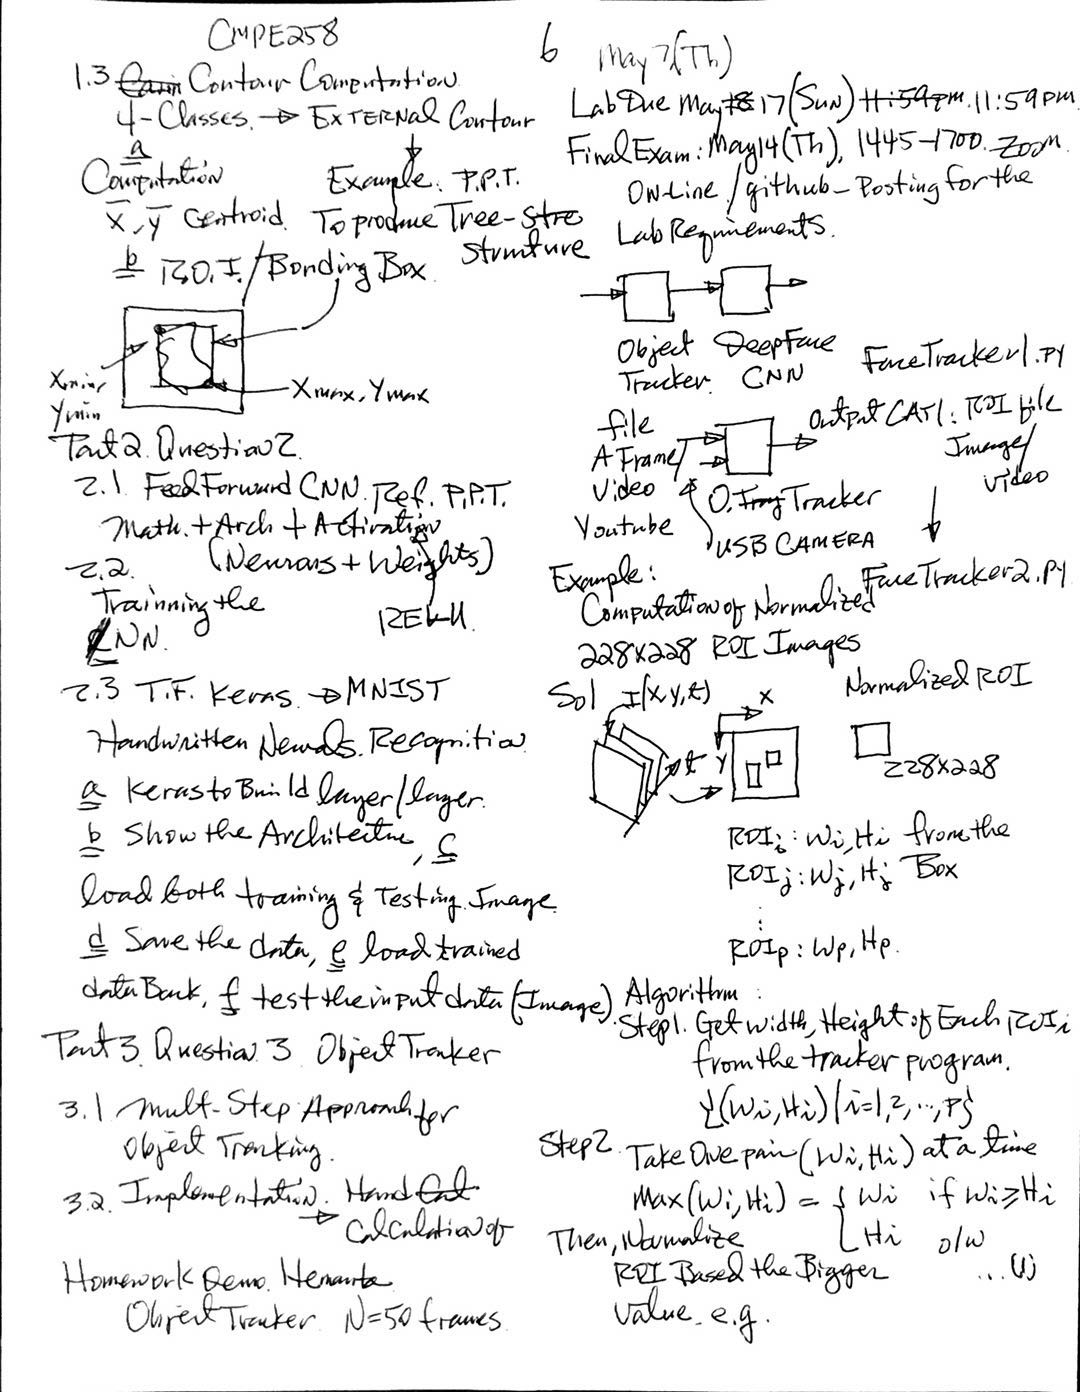 CMPE258
6
1.3 Contour Computation
4-Classes. → EXTERNAL Contour
a
Computation
Example: P.P.T.
x̄, ȳ Centroid. To produce Tree-Stre
Structure
b R.O.I./Bonding Box
Xmin,
Ymin
Xmax, Ymax
Part 2. Question 2.
2.1. Feed Forward CNN. Ref. P.P.T.
Math. + Arch + Activation
(Neurons + Weights)
2.2.
Trainning the
CNN.
RELU.
2.3 T.F. Keras → MNIST
Handwritten Recognition
a Keras to Build layer/layer.
b Show the Architectue, c
load both training & Testing Image
d Save the data, e load trained
data Back, f test the input data (Image)
Part 3. Question 3 Object Tracker
3.1 Mult-Step Approach for
Object Tracking.
3.2. Implementation. Hand Cal
→ Calculation of
Homework Demo.
Object Tracker N=50 frames.
May 7 (Th)
Lab Due May 18 17 (Sun) 11:59pm. 11:59PM
Final Exam: May 14 (Th), 1445-1700. Zoom
On-Line/github - Posting for the
Lab Requirements.
Object DeepFace
Tracker. CNN
FaceTracker1.py
file
A Frame/
Video
Youtube
Output CAT1: ROI file
Image/
Video
O. Tracker
USB CAMERA
FaceTracker2.py
Example:
Computation of Normalized
228x228 ROI Images
Sol I(x,y,t)
x
Normalized ROI
t y
228x228
ROIi: Wi, Hi from the
ROIj: Wj, Hj Box
⋮
ROIp: Wp, Hp.
Algorithm:
Step1. Get width, Height of Each ROIi
from the tracker program.
{(Wi,Hi)|i=1,2,...,P}
Step2. Take One pair (Wi,Hi) at a time
Max(Wi,Hi) = { Wi if Wi≥Hi
Hi o/w
Then, Normalize
...(1)
ROI Based the Bigger
Value. e.g.